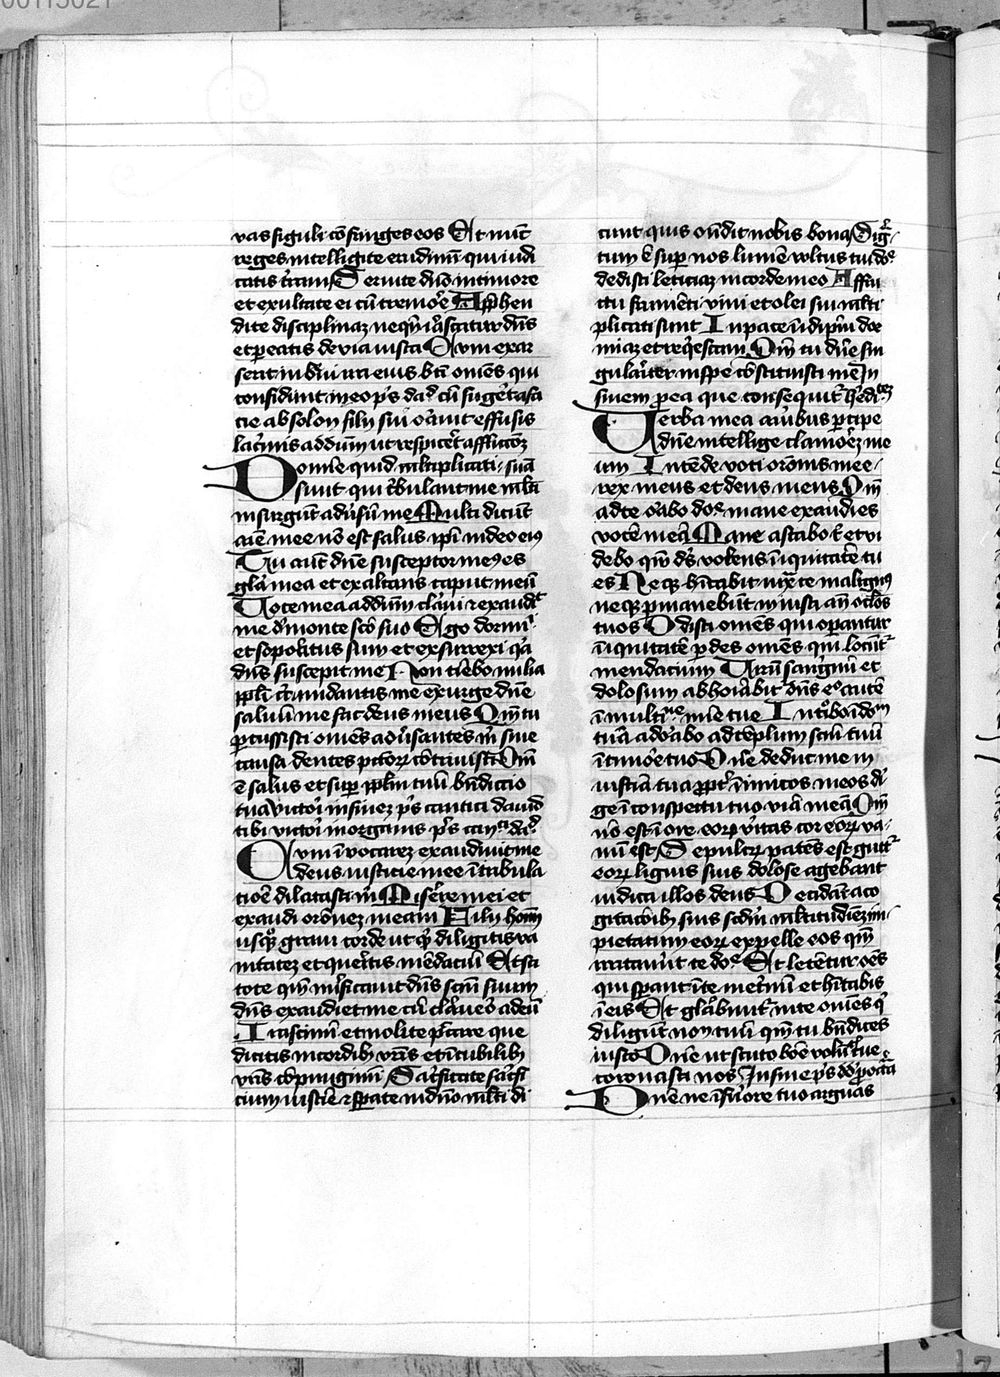 vas figuli cōfringes eos Et nūc
reges intelligite erudimī qui iudi
catis t̓ram Seruite dn̄o in timore
et exultate ei cū tremore Apphen
dite disciplinaz neqn̄ irascatur dn̄s
et pereatis de via iusta Cum exar
serit in brui ira eius bt̄i omēs qui
confidunt in eo ps dad cū fugeret a fa
cie absolon filij sui orauit effusis
lacrimis ad dūm ut respiceret
Domīe quid multiplicati sūt
sunt qui tribulant me mlti
insurgūt aduersū me Multi dicūt
aīe mee nō est salus ipī in deo eius
Tu aut dn̄e susceptor meus es
glā mea et exaltans caput meū
Voce mea ad dūm clamaui et exaudit
me de monte scō suo Ego dormiui
et soporatus sum et exsurrexi quia
dn̄s suscepit me Non timebo milia
ppli circumdantis me exurge dn̄e
saluū me fac deus meus Qm̄ tu
percussisti omēs aduersantes m̄ sine
causa dentes peccatorū contriuisti Dn̄i
ē salus et super pplm tuū bn̄dictio
tua victori in finez ps cantici dauid
tibi victori in organis ps dad
Cum īuocarez exaudiuit me
deus iusticie mee ī tribula
tione dilatasti m̄ Miserere mei et
exaudi orōnez meam Filij homī
usquequo graui corde ut quid diligitis va
nitatez et queritis mēdaciū Et sci
tote qm̄ mirificauit dn̄s scm̄ suum
dn̄s exaudiet me cū clamauero ad eū
Irascimini et nolite peccare que
dicitis in cordib vrīs et ī cubilib
vrīs cōpungimini Sacrificate sacrifi
cium iusticie et sperate in dn̄o mlti di
cunt quis ostendit nobis bona Signa
tum ē super nos lumē voltus tui doe
dedisti leticiaz in corde meo A fru
ctu frumēti vini et olei sui mlti
plicati sunt In pace ī idipm̄ dor
miaz et requiescam Qm̄ tu dn̄e sin
gulariter in spe cōstituisti me In
finem pro ea que consequitur
Verba mea auribus percipe
dn̄e intellige clamorez me
um Intēde voci orōnis mee
rex meus et deus meus Qm̄
ad te orabo doe mane exaudies
vocē meā Mane astabo t et vi
debo qm̄ ds̄ volens īiquitatē tu
es Neqz hītabit iuxta te malignus
neqz permanebūt iniusti an̄ oclos
tuos Odisti omēs qui operantur
īiquitatē perdes omēs qui locūtur
mendacium Virū sanguinū et
dolosum abhoiabit dn̄s ego autē
ī multitudine mīe tue Introibo ī domū
tuā adorabo ad tēplum scm̄ tuū
ī timore tuo Dn̄e deduc me in
iusticia tua propter īimicos meos diri
ge ī conspectu tuo viā meā Qm̄
nō est ī ore eorū veritas cor eorū va
nū est Sepulcrū patens est guttur
eorū liguis suis dolose agebant
iudica illos deus Decidāt a co
gitacōib suis scdm̄ mltitudinez im
pietatum eorū expelle eos qm̄
irritauerūt te doe Et letentur oēs
qui sperant ī te ī eternū et hītabis
ī eis Et glabuntur in te omēs qui
diligūt nomen tuū qm̄ tu bn̄dices
iusto Dn̄e ut scuto bone volūtatis tue
coronasti nos In fine ps dd
Dn̄e ne ī furore tuo arguas